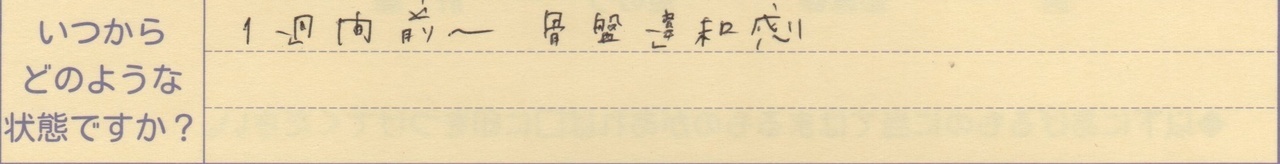 いつから
どのような
状態ですか?
1週間前〜 骨盤違和感